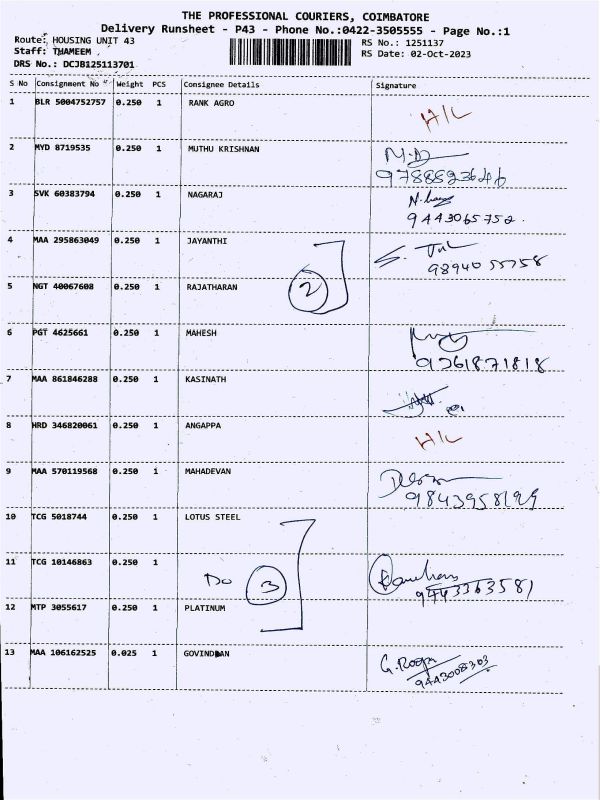 THE PROFESSIONAL COURIERS, COIMBATORE
Delivery Runsheet - P43 - Phone No.:0422-3505555 - Page No.:1
Route: HOUSING UNIT 43
RS No.: 1251137
Staff: THAMEEM
RS Date: 02-Oct-2023
DRS No.: DCJB125113701
S No Consignment No Weight PCS Consignee Details Signature
1 BLR 5004752757 0.250 1 RANK AGRO
H/L
2 MYD 8719535 0.250 1 MUTHU KRISHNAN
9788823646
3 SVK 60383794 0.250 1 NAGARAJ
9443065752.
4 MAA 295863049 0.250 1 JAYANTHI
9894055758
5 NGT 40067608 0.250 1 RAJATHARAN
2
6 PGT 4625661 0.250 1 MAHESH
9361871818
7 MAA 861846288 0.250 1 KASINATH
8 HRD 346820061 0.250 1 ANGAPPA
H/L
9 MAA 570119568 0.250 1 MAHADEVAN
9843958199
10 TCG 5018744 0.250 1 LOTUS STEEL
11 TCG 10146863 0.250 1
Do 3
9443363581
12 MTP 3055617 0.250 1 PLATINUM
13 MAA 106162525 0.025 1 GOVINDHAN
9443008303